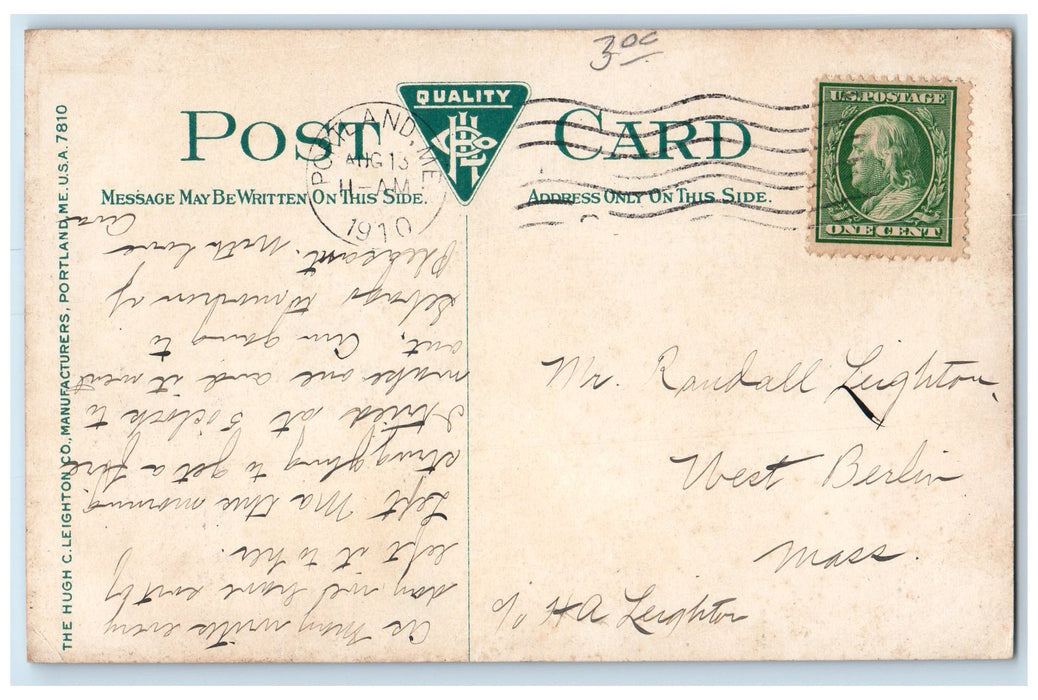 3oc
QUALITY
POST CARD
U.S. POSTAGE
ONE CENT
PORTLAND, ME.
AUG 13
11-AM
1910
MESSAGE MAY BE WRITTEN ON THIS SIDE.
ADDRESS ONLY ON THIS SIDE.
THE HUGH C. LEIGHTON CO., MANUFACTURERS, PORTLAND, ME. U.S.A. 7810
As Mary writes every
day and have
left it to her.
Left Ma this morning
struggling to get a fire
I tried at 5 oclock to
make one and it went
out. Am going to
Sebago tomorrow if
Pleasant. With love
Mr. Randall Leighton,
West Berlin
Mass.
c/o H A Leighton